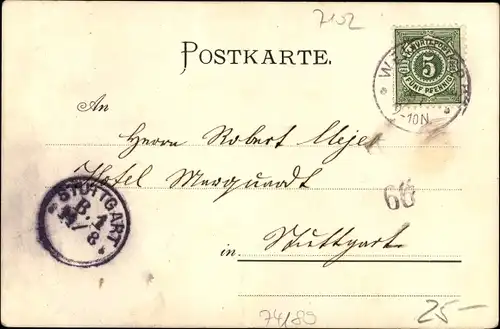 7102
POSTKARTE.
K. WÜRTT. POST
5
FÜNF PFENNIG
W
-10N.
An
Herrn Robert Meyer
Hotel Marquardt
66
in Stuttgart
STUTTGART
B. 1
74/80
25-